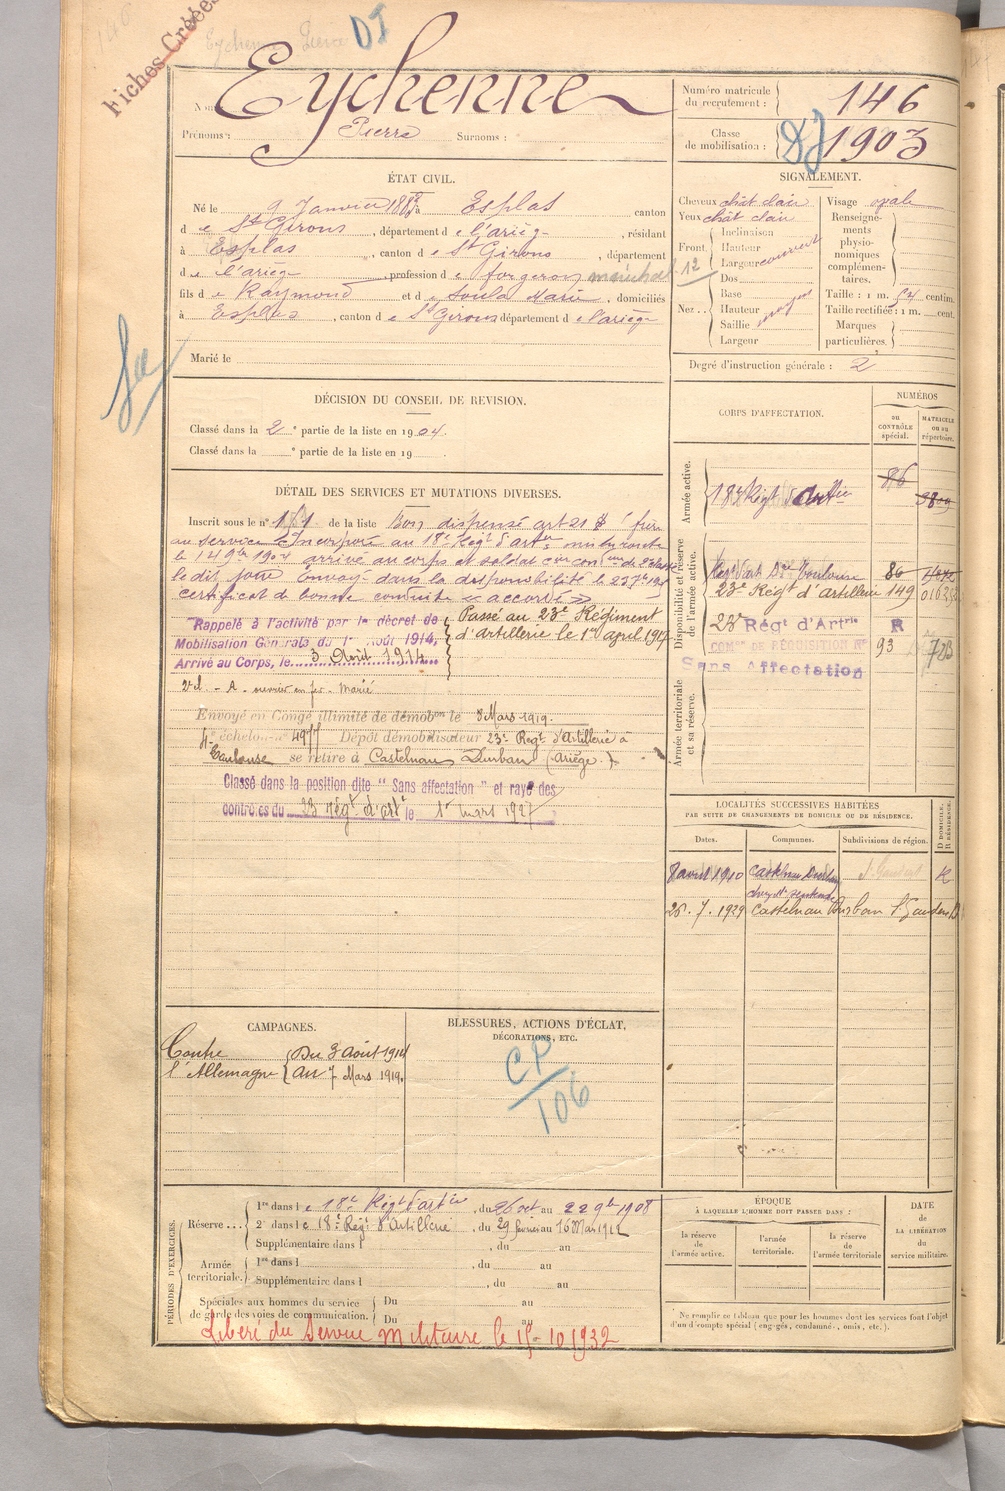 Fiches Créées
Eychenne Pierre DI
Nom : Eychenne
Prénoms : Pierre Surnoms :
Numéro matricule du recrutement : 146
Classe de mobilisation : 1903
ÉTAT CIVIL.
Né le 9 Janvier 188 à Esplas canton
de St Girons, département de l'ariège, résidant
à Esplas, canton de St Girons, département
de l'ariège, profession de forgeron maréchal 12
fils de Raymond et de Soula Marie, domiciliés
à Esplas, canton de St Girons département de l'ariège
Marié le
SIGNALEMENT.
Cheveux chât clair Visage ovale
Yeux chât clair
Front Inclinaison Hauteur Largeur couvert
Nez Dos Base Hauteur Saillie Largeur moyen
Renseignements physionomiques complémentaires.
Taille : 1 m. 54 centim.
Taille rectifiée : 1 m. cent.
Marques particulières.
Degré d'instruction générale : 2
DÉCISION DU CONSEIL DE REVISION.
Classé dans la 2e partie de la liste en 1904.
Classé dans la e partie de la liste en 19
DÉTAIL DES SERVICES ET MUTATIONS DIVERSES.
Inscrit sous le n° 151 de la liste Bon dispensé art 21
au service Incorporé au 18e Régt d'arterie
le 14 9bre 1904 arrivé au corps et soldat
le dit jour Envoyé dans la disponibilité le 23
certificat de bonne conduite « accordé »
Rappelé à l'activité par le décret de
Mobilisation Générale du 1er Août 1914,
Arrivé au Corps, le 3 Août 1914
Passé au 23e Régiment
d'Artillerie le 1er april 1917
ouvrier en fer. Marié
Envoyé en Congé illimité de démobon le 8 Mars 1919.
4e échelon n° 4977 Dépôt démobilisateur 23e Regt d'Artillerie à
Toulouse se retire à Castelnau Durban (Ariège.)
Classé dans la position dite "Sans affectation" et rayé des
contrôles du 23 régt d'artie le 1er mars 1927
CORPS D'AFFECTATION.
NUMÉROS
au CONTRÔLE spécial.
MATRICULE ou au répertoire.
Armée active.
18e Régt d'Artie 86
Disponibilité et réserve de l'armée active.
Régt d'art Toulouse 86
23e Régt d'Artillerie 149
23e Régt d'Artrie R
COMon DE RÉQUISITION N° 93
Sans Affectation
Armée territoriale et sa réserve.
LOCALITÉS SUCCESSIVES HABITÉES
PAR SUITE DE CHANGEMENTS DE DOMICILE OU DE RÉSIDENCE.
Dates. Communes. Subdivisions de région. D DOMICILE. R RÉSIDENCE.
8 avril 1910 Castelnau Durban St Gaudens R
26.7.1929 Castelnau Durban St Gaudens D
CAMPAGNES.
Contre l'Allemagne
Du 3 Août 1914
au 7 Mars 1919.
BLESSURES, ACTIONS D'ÉCLAT,
DÉCORATIONS, ETC.
CP/106
PÉRIODES D'EXERCICES.
Réserve...
1re dans le 18e Régt d'artie, du 26 oct au 22 9bre 1908
2e dans le 18e Régt d'Artillerie, du 29 février au 16 Mars 1912
Supplémentaire dans l , du au
Armée territoriale.
1re dans l , du au
Supplémentaire dans l , du au
Spéciales aux hommes du service
de garde des voies de communication.
Du au
Du au
Libéré du Service Militaire le 15-10 1932
ÉPOQUE
À LAQUELLE L'HOMME DOIT PASSER DANS :
la réserve de l'armée active.
l'armée territoriale.
la réserve de l'armée territoriale
DATE DE LA LIBÉRATION du service militaire.
Ne remplir ce tableau que pour les hommes dont les services font l'objet
d'un décompte spécial (engagés, condamnés, omis, etc.).